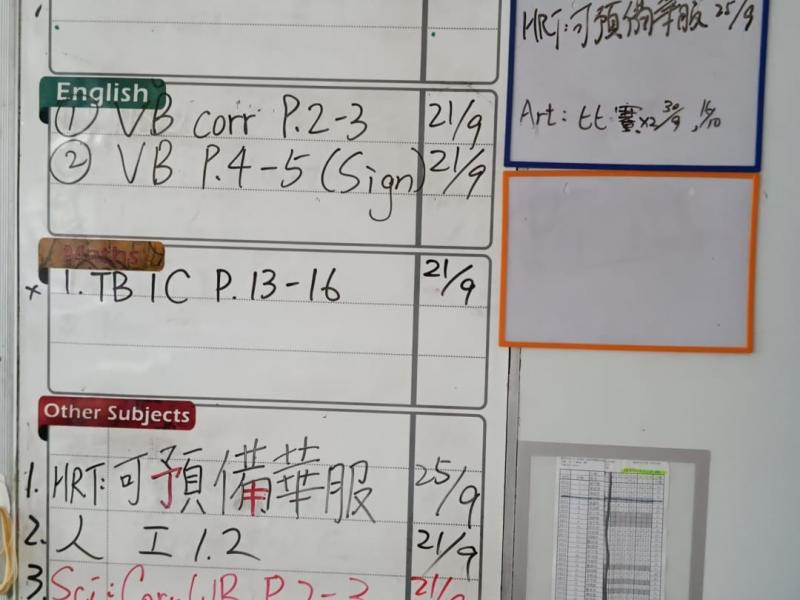 English
① VB corr P.2-3 21/9
② VB P.4-5 (Sign) 21/9
1. TB 1C P.13-16 21/9
Other Subjects
1. HRT: 可預備華服 25/9
2. 人工 1.2 21/9
3. Sci: Corr WB P.2-3 21/9
HRT: 可預備華服 25/9
Art: 比賽x2 30/9, 16/10